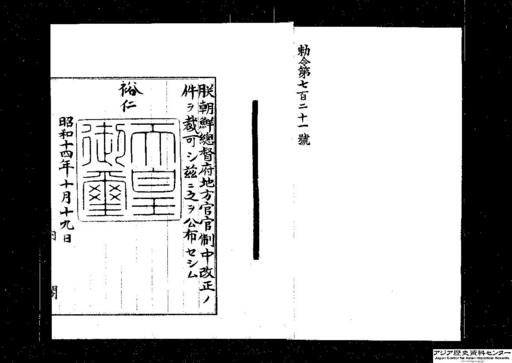 勅令第七百二十一號
朕朝鮮總督府地方官官制中改正ノ
件ヲ裁可シ茲ニ之ヲ公布セシム
裕仁
天皇
御璽
昭和十四年十月十九日
内閣
アジア歴史資料センター
Japan Center for Asian Historical Records